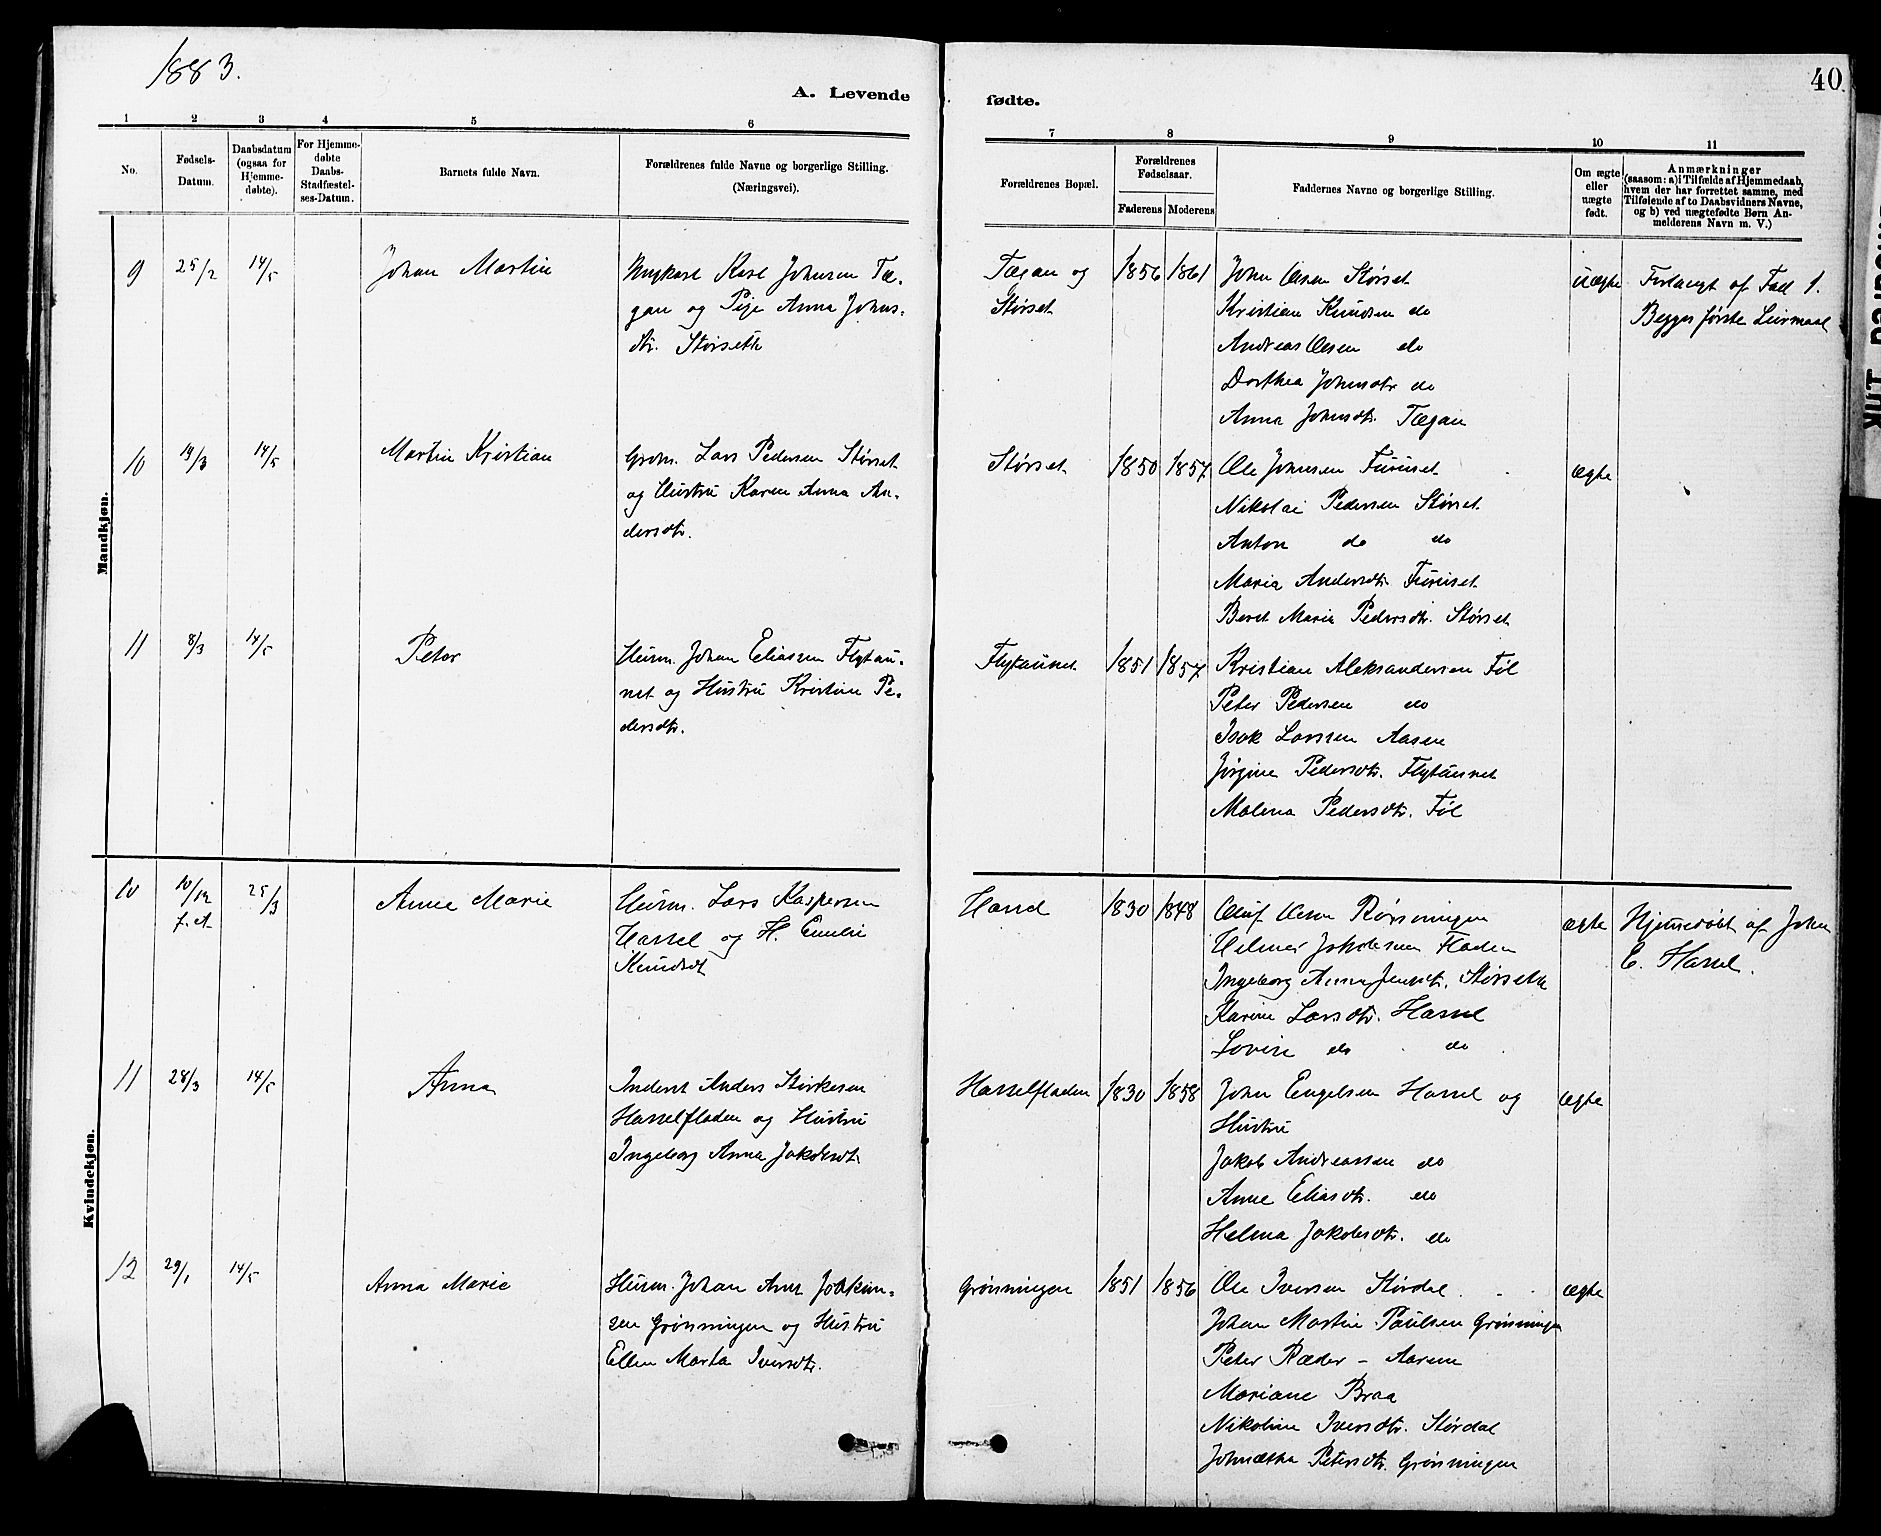 1883.
A. Levende
fødte.
40
1 2 3 4 5 6 7 8 9 10 11
No.
Fødsels-
Datum.
Daabsdatum
(ogsaa for
Hjemme-
døbte).
For Hjemme-
døbte
Daabs-
Stadfæstel-
ses-Datum.
Barnets fulde Navn.
Forældrenes fulde Navne og borgerlige Stilling.
(Næringsvei).
Forældrenes Bopæl.
Forældrenes
Fødselsaar.
Faderens Moderens
Faddernes Navne og borgerlige Stilling.
Om ægte
eller
uægte
født.
Anmærkninger
(saasom: a) i Tilfælde af Hjemmedaab,
hvem der har forrettet samme, med
Tilføiende af to Daabsvidners Navne,
og b) ved uægtefødte Børn An-
melderens Navn m. V.)
Mandkjøn.
9
25/2
14/5
Johan Martin
Ungkarl Karl Johnsen Tæ-
gan og Pige Anna Johns-
dtr. Størseth
Tægan og
Størset
1856 1861
John Olsen Størset
Kristian Knudsen do
Andreas Olsen do
Dorthea Johnsdtr do
Anna Johnsdtr. Tægan
uægte
Forlangt af Fad 1.
Begges første Leirmaal
10
14/3
14/5
Martin Kristian
Grdm. Lars Pedersen Størset
og Hustru Karen Anna An-
dersdtr.
Størset
1850 1857
Ole Johnsen Furuset
Nikolai Pedersen Størset
Anton do do
Maria Andersdtr Furuset
Beret Maria Pedersdtr. Størset
ægte
11
8/3
14/5
Peter
Husm. Johan Eliassen Flytau-
net og Hustru Kristine Pe-
dersdtr.
Flytaunet
1851 1857
Kristian Aleksandersen Føl
Peter Pedersen do
Isak Larssen Aasen
Jørgine Pedersdtr. Flytaunet
Malena Pedersdtr. Føl
Kvindekjøn.
10
10/12
f. A
25/3
Anne Marie
Husm. Lars Kaspersen
Hassel og H. Emelie
Knudsdt
Hassel
1830 1848
Oluf Olsen Rønningen
Helmer Jakobsen Fladen
Ingeborg Anna Jensdt. Størseth
Karine Larsdtr. Hassel
Lovise do do
ægte
Hjemmedøbt af John
E. Hassel.
11
28/3
14/5
Anna
Inderst Anders Størkesen
Hasselfladen og Hustru
Ingeborg Anna Jakobsdt.
Hasselfladen
1830 1858
John Engelsen Hassel og
Hustru
Jakob Andreassen do
Anne Eliasdtr. do
Helma Jakobsdtr. do
ægte
12
29/1
14/5
Anna Marie
Husm. Johan Arnt Joakim-
sen Grønningen og Hustru
Ellen Marta Iversdtr.
Grønningen
1851 1856
Ole Iversen Størdal
Johan Martin Paulsen Grønningen
Peter Ræder - Aasen
Mariane Braa
Nikoline Iversdtr. Størdal
Johnetha Petersdtr. Grønningen
ægte